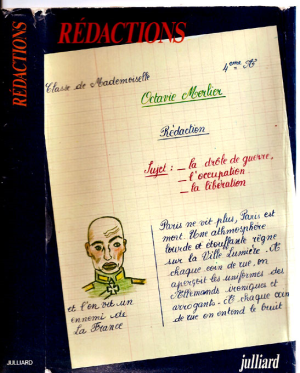 RÉDACTIONS
JULLIARD
RÉDACTIONS
4ème A
Classe de Mademoiselle
Octavie Merlier
Rédaction
Sujet : - la drôle de guerre,
- l'occupation
- la libération
Paris ne vit plus, Paris est
mort. Une athmosphère
lourde et étouffante règne
sur la Ville Lumière. A
chaque coin de rue, on
aperçoit les uniformes des
Allemands ironiques et
arrogants. A chaque coin
de rue on entend le bruit
et l'on vit un
ennemi de
la France
julliard